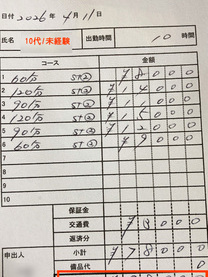 日付 2026年 4月 11日
氏名 10代/未経験 出勤時間 10時間
コース 金額
1 60分 ST② ¥8000
2 120分 ST② ¥14000
3 90分 ST②
4 120分 ST② ¥15000
5 90分 ST② ¥12000
6 60分 ST② ¥9000
7
8
9
10
保証金
交通費
返済分
小計 ¥78000
備品代 0
申出人